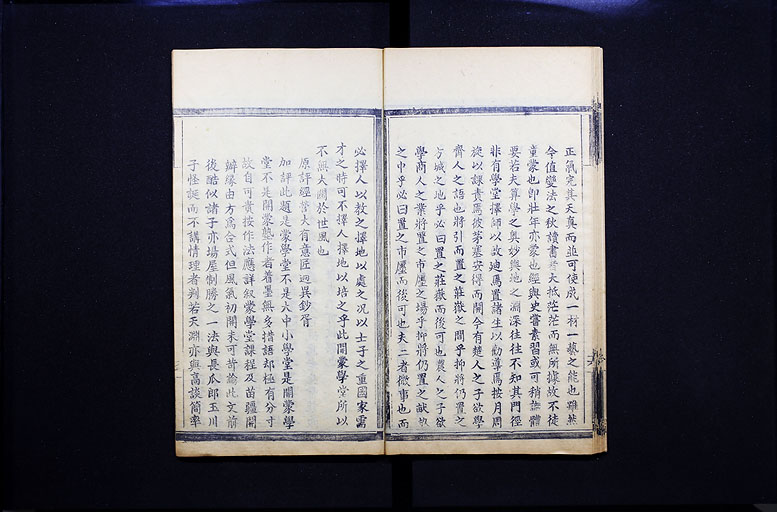 正氣完其天真而並可使成一材一藝之能也雖然
今值變法之秋讀書者大抵茫茫而無所據故不徒
童蒙也即壯年亦蒙也經與史嘗素習或可稍識體
要若夫算學之奧妙與地之淵深往往不知其門徑
非有學堂擇師以啟迪焉置諸生以勸導焉按月周
旋以課責焉彼茅塞安得而開今有楚人之子欲學
齊人之語也將引而置之莊嶽之間乎抑將仍置之
方城之地乎必曰置之莊嶽而後可也農人之子欲
學商人之業將置之市廛之場乎抑將仍置之畎畝
之中乎必曰置之市廛而後可也夫二者微事也而
必擇人以教之擇地以處之况以士子之重國家需
才之時可不擇人擇地以培之乎此開蒙學堂所以
不無大關於世風也
原評經營大有意匠迥異鈔胥
加評此題是蒙學堂不是大中小學堂是開蒙學
堂不是開蒙塾作者着墨無多措語却極有分寸
故自可貴按作法應詳叙蒙學堂課程及苗疆開
辦緣由方為合式但風氣初開未可苛論此文前
後酷似諸子亦場屋制勝之一法與長瓜郎玉川
子怪誕而不講情理者判若天淵亦與高談簡率